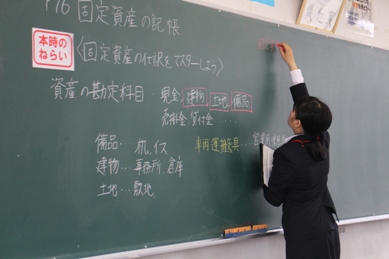 P76 固定資産の記帳
本時の
ねらい
〈固定資産の仕訳をマスターしよう〉
資産の勘定科目 現金、建物、土地、備品
売掛金 貸付金 ……
備品… 机、イス 車両運搬具…
建物… 事務所、倉庫
土地… 敷地